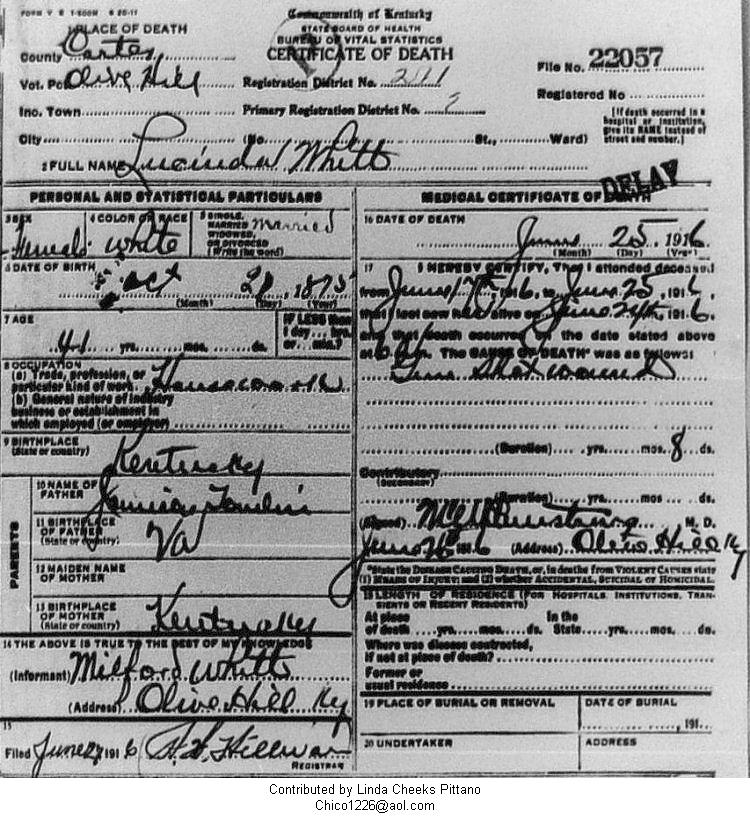 FORM V S 1-500M 8 20-11
Commonwealth of Kentucky
STATE BOARD OF HEALTH
BUREAU OF VITAL STATISTICS
CERTIFICATE OF DEATH
1 PLACE OF DEATH
County Carter
Vot. Pct Olive Hill
Inc. Town
City
Registration District No.
Primary Registration District No.
File No. 22057
Registered No
(No. St., Ward)
[If death occurred in a hospital or institution, give its NAME instead of street and number.]
2 FULL NAME Lucinda Whitt
PERSONAL AND STATISTICAL PARTICULARS
3 SEX
Female
4 COLOR OR RACE
white
5 SINGLE, MARRIED, WIDOWED, OR DIVORCED (Write the word)
Married
6 DATE OF BIRTH
Oct 1875
(Month) (Day) (Year)
7 AGE
41 yrs. mos. ds.
IF LESS than 1 day ... hrs. or ... min.?
8 OCCUPATION
(a) Trade, profession, or particular kind of work Housework
(b) General nature of industry business or establishment in which employed (or employer)
9 BIRTHPLACE
(State or country) Kentucky
PARENTS
10 NAME OF FATHER
11 BIRTHPLACE OF FATHER
(State or country) Va
12 MAIDEN NAME OF MOTHER
13 BIRTHPLACE OF MOTHER
(State or country) Kentucky
14 THE ABOVE IS TRUE TO THE BEST OF MY KNOWLEDGE
(Informant) Milford Whitt
(Address) Olive Hill Ky
15
Filed June 27 1916
REGISTRAR
MEDICAL CERTIFICATE OF DEATH
DELAY
16 DATE OF DEATH
June 25, 1916
(Month) (Day) (Year)
17 I HEREBY CERTIFY, That I attended deceased
from June 17th 1916, to June 25, 1916,
that I last saw her alive on June 24th, 1916,
and that death occurred on the date stated above
at m. The CAUSE OF DEATH* was as follows:
Gun Shot wound
(Duration) yrs. mos. 8 ds.
Contributory
(SECONDARY)
(Duration) yrs. mos ds.
(Signed) M. D.
June 26 1916 (Address) Olive Hill Ky
*State the DISEASE CAUSING DEATH, or, in deaths from VIOLENT CAUSES state
(1) MEANS OF INJURY; and (2) whether ACCIDENTAL, SUICIDAL or HOMICIDAL.
18 LENGTH OF RESIDENCE (FOR HOSPITALS, INSTITUTIONS, TRANSIENTS OR RECENT RESIDENTS)
At place of death yrs. mos. ds. In the State yrs. mos. ds.
Where was disease contracted,
if not at place of death?
Former or
usual residence
19 PLACE OF BURIAL OR REMOVAL
DATE OF BURIAL
191
20 UNDERTAKER
ADDRESS
Contributed by Linda Cheeks Pittano
Chico1226@aol.com